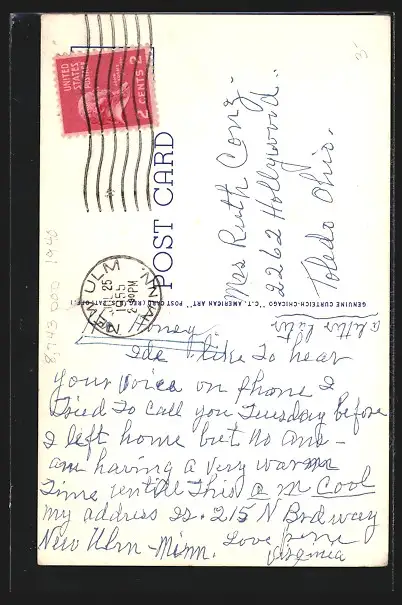 UNITED
STATES
POSTAGE
2 CENTS 2
NEW ULM
MINN.
25
1955
2 PM
POST CARD
GENUINE CURTEICH-CHICAGO "C.T. AMERICAN ART" POST CARD (REG. U.S. PAT. OFF.)
Mrs Ruth Conz.
2262 Hollywood.
Toledo Ohio.
a letter later
8,743,000 1940
Honey.
Ide like To hear
your voice on phone I
Tried To call you Tuesday before
I left home but no ans–
am having a very warm
Time until This a m Cool
my address is. 215 N Brdway
New Ulm – Minn. Love